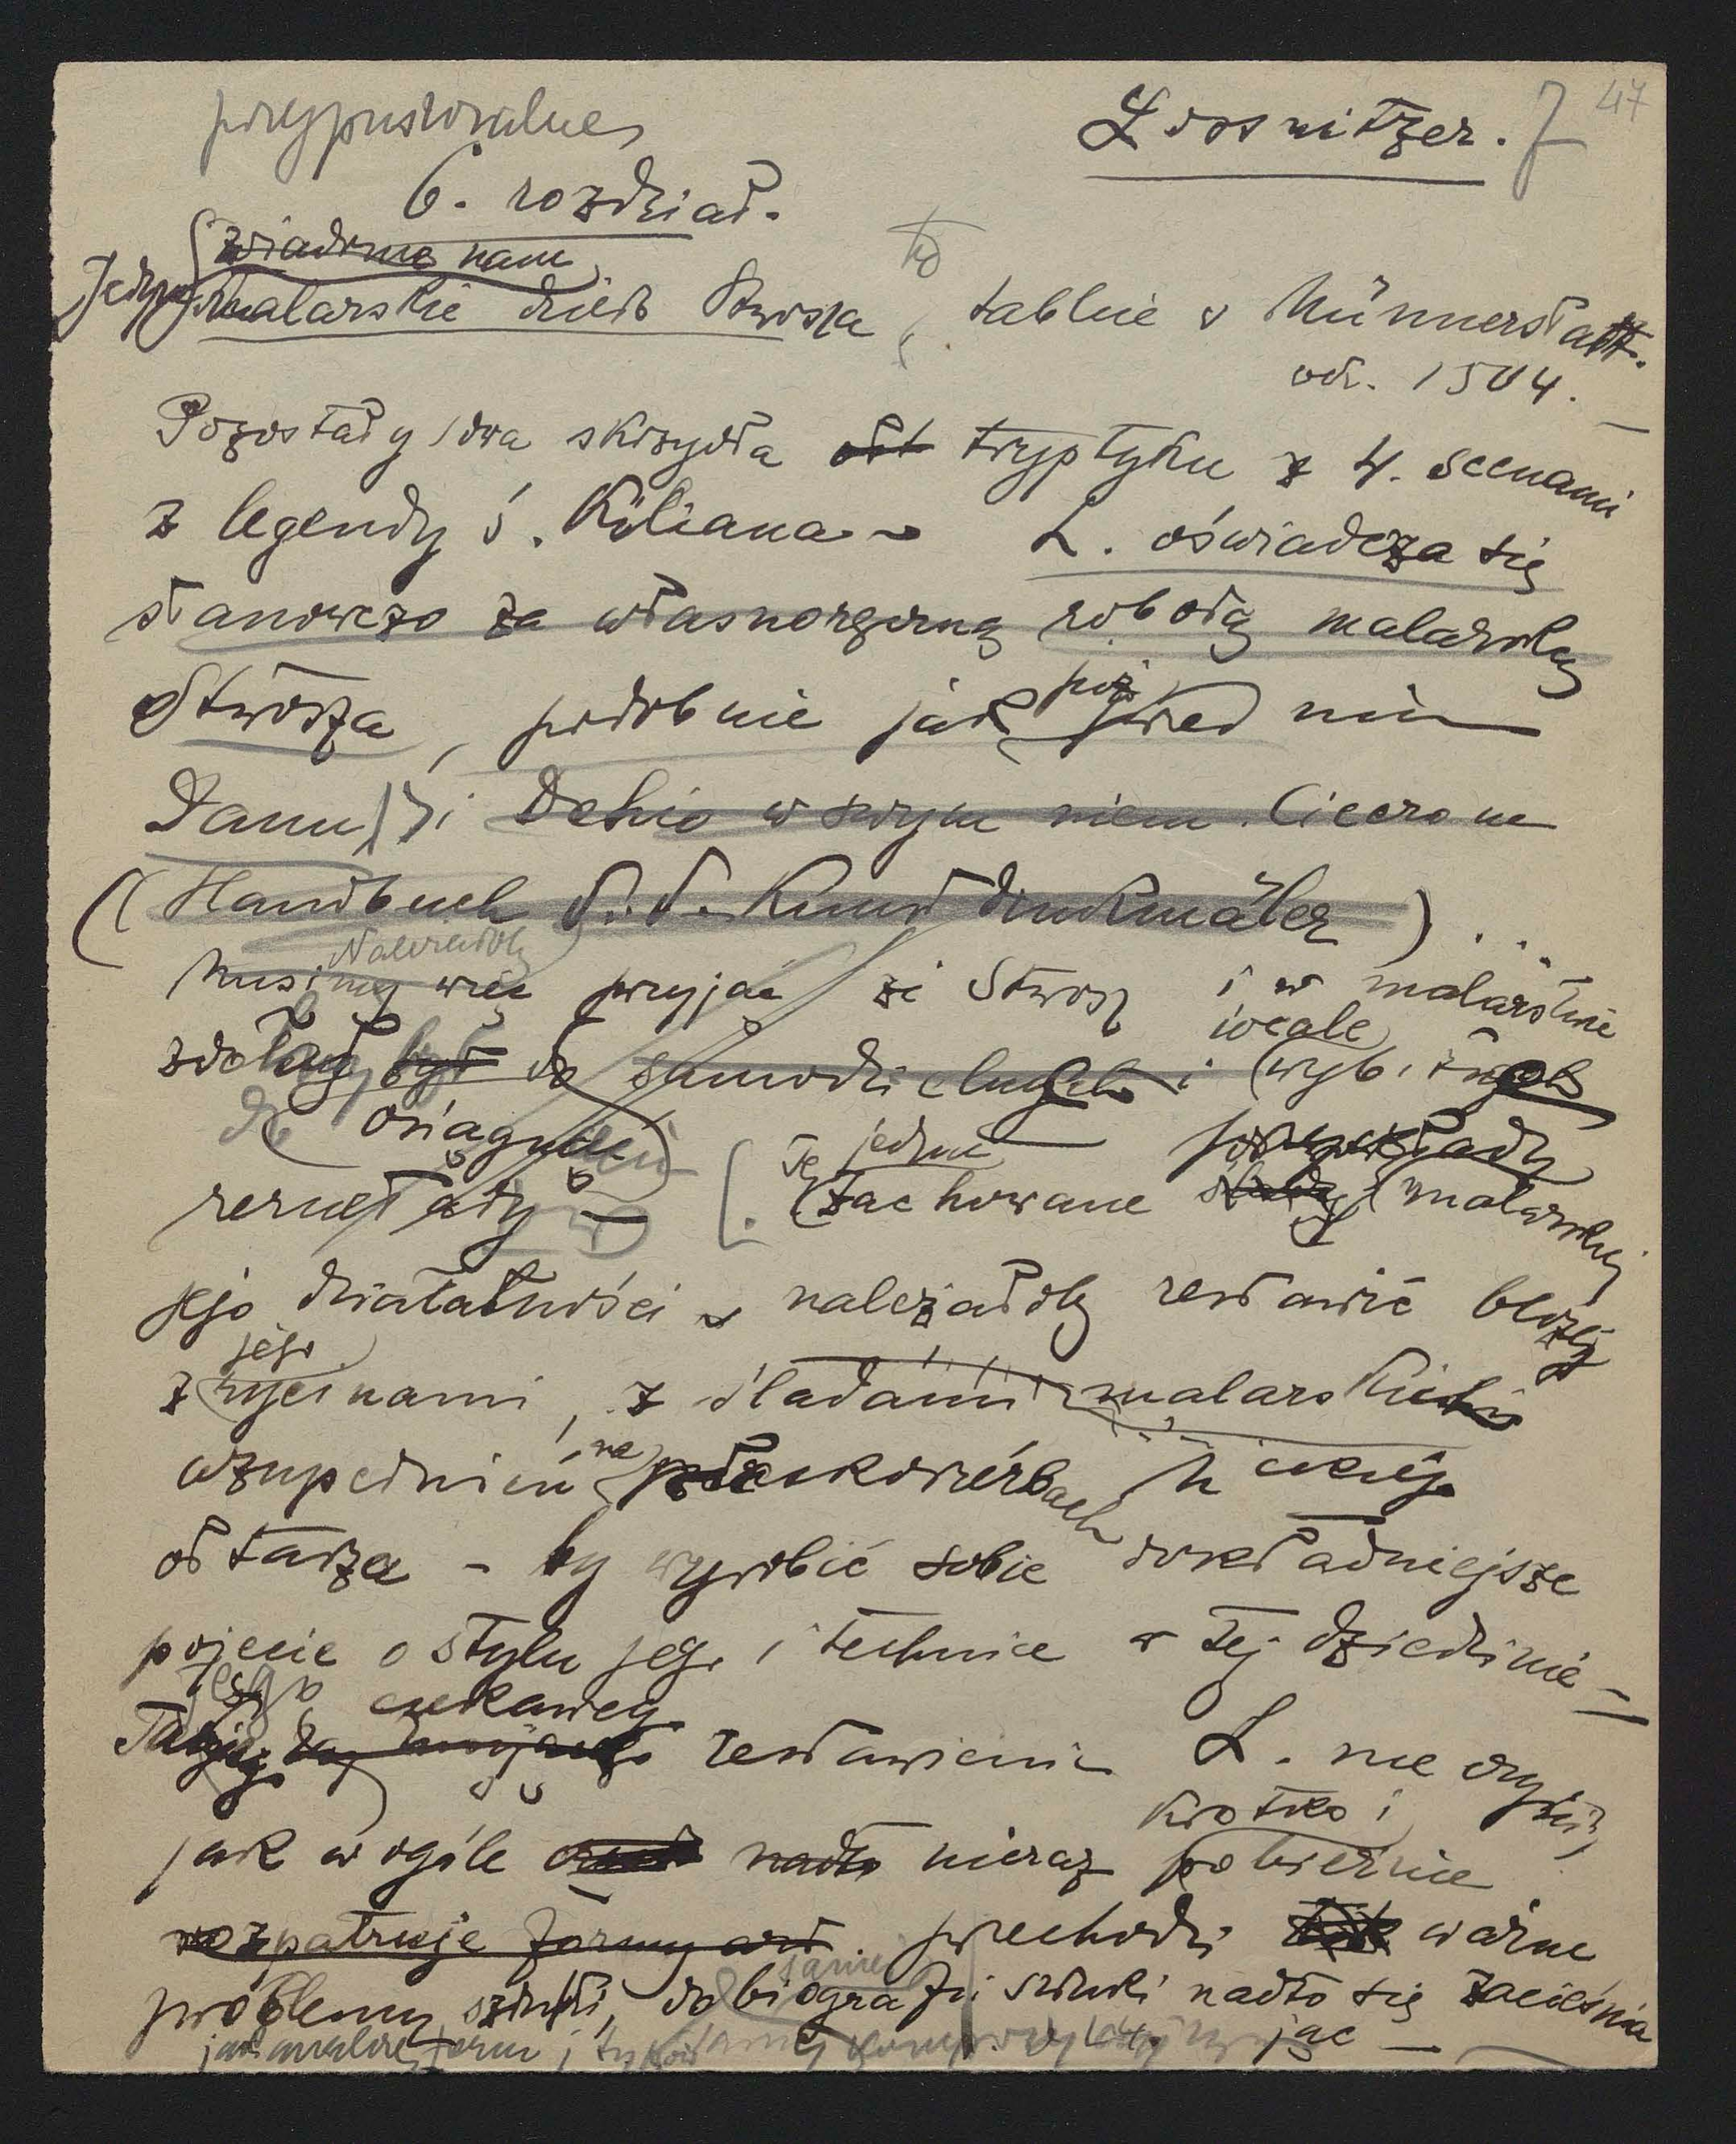 przypuszczalne
Lossnitzer. 7 47
6. rozdział.
wiadome nam
Jedyne malarskie dzieło Stwosza, to tablice w Münnerstatt.
od. 1504. —
Pozostały dwa skrzydła tryptyku z 4. scenami
z legendy ś. Kiliana — L. oświadcza się
stanowczo za własnoręczną robotą malarską
Stwosza, podobnie jak przed nim
Daun i Dehio w swym niem. Cicerone
(Handbuch d. d. Kunstdenkmäler) ...
Należałoby
Musimy więc przyjąć że Stwosz i w malarstwie
wcale
zdolny był do samodzielnych i wybitnych
do osiągnięcia
rezultaty — Te jedyne przykłady
zachowane malarskiej
jego działalności — należałoby zestawić bliżej
jego
z rycinami, z śladami malarskich
uzupełnień na płaskorzeźbach
ołtarza — by wyrobić sobie dokładniejsze
pojęcie o stylu jego i technice w tej dziedzinie —
ciekawego
zestawienia L. nie
krótko i
jak w ogóle nadto nieraz pobieżnie
rozpatruje formy art. przechodzi ważne
problemy sztuki, do biografii sztuki nadto się zacieśnia
jąc —